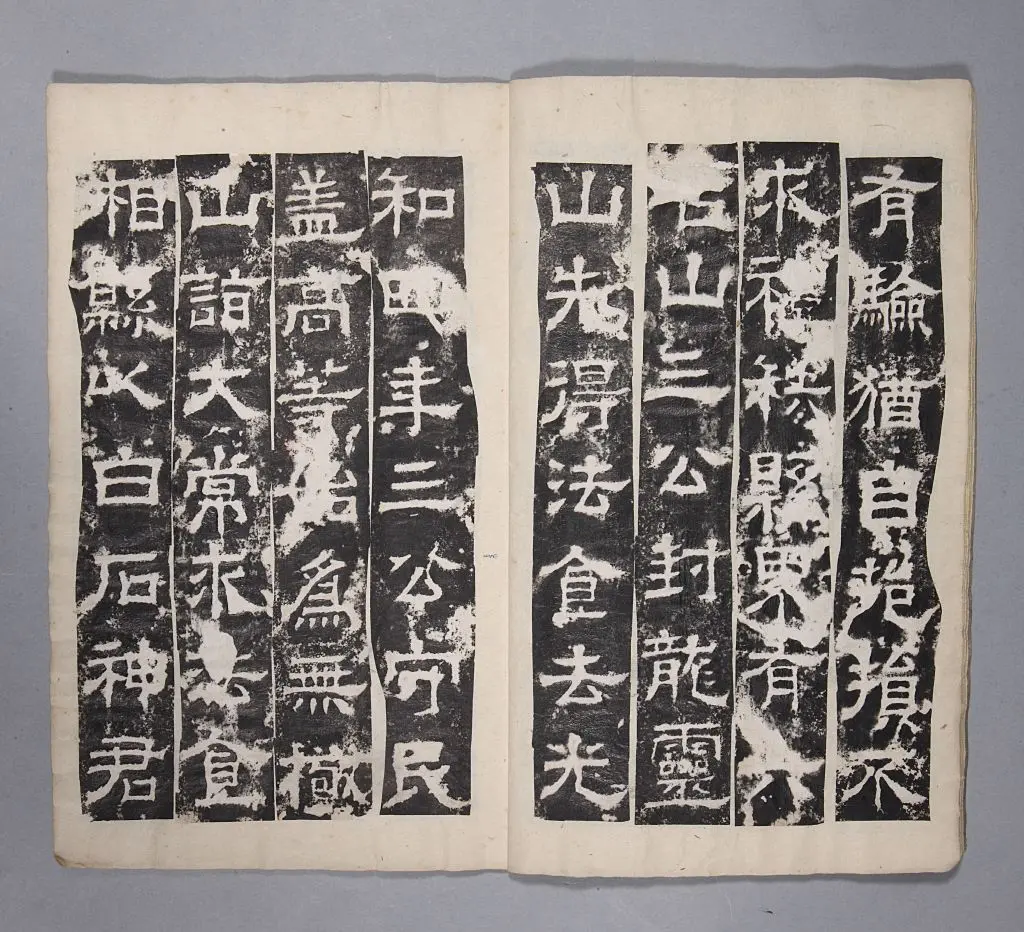 有驗猶自挹損不
求禮秩縣界有六
名山三公封龍靈
山先得法食去光
和四年三公守民
盖高等始為無極
山詣大常求法食
相縣以白石神君